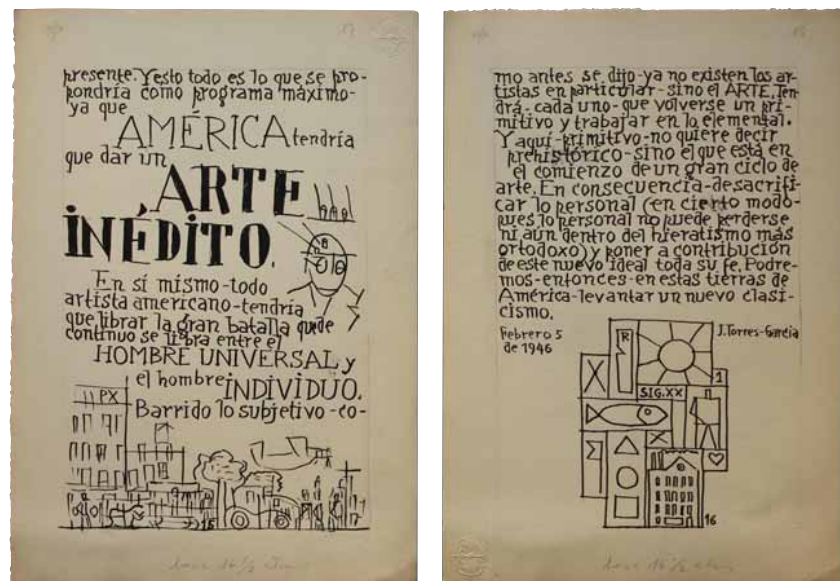 presente. Y esto todo es lo que se pro-
pondría como programa máximo-
ya que
AMÉRICA tendría
que dar un
ARTE
INÉDITO.
En sí mismo-todo
artista americano-tendría
que librar la gran batalla que de
continuo se libra entre el
HOMBRE UNIVERSAL y
el hombre INDIVIDUO.
Barrido lo subjetivo-co-
PX
15
mo antes se dijo-ya no existen los ar-
tistas en particular-sino el ARTE. Ten-
drá-cada uno-que volverse un pri-
mitivo y trabajar en lo elemental.
Y aquí-primitivo-no quiere decir
prehistórico-sino el que está en
el comienzo de un gran ciclo de
arte. En consecuencia-desacrifi-
car lo personal (en cierto modo-
pues lo personal no puede perderse
ni aún dentro del hieratismo más
ortodoxo) y poner a contribución
de este nuevo ideal toda su fe. Podre-
mos-entonces-en estas tierras de
América-levantar un nuevo clasi-
cismo.
Febrero 5
de 1946
J. Torres-García
R
1
SIG.XX
16